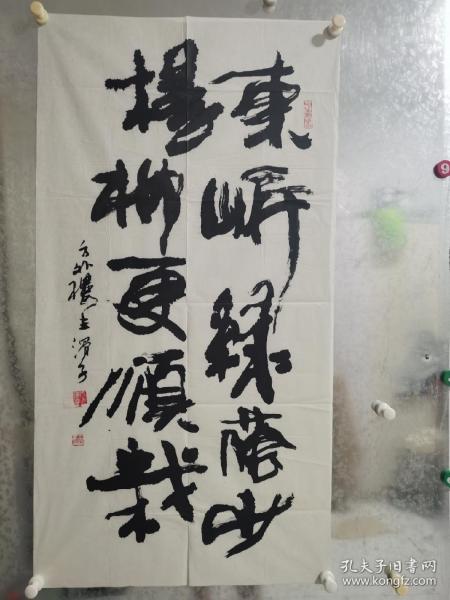 東岸綠蔭少
楊柳更須栽
孔夫子旧书网
www.kongfz.com